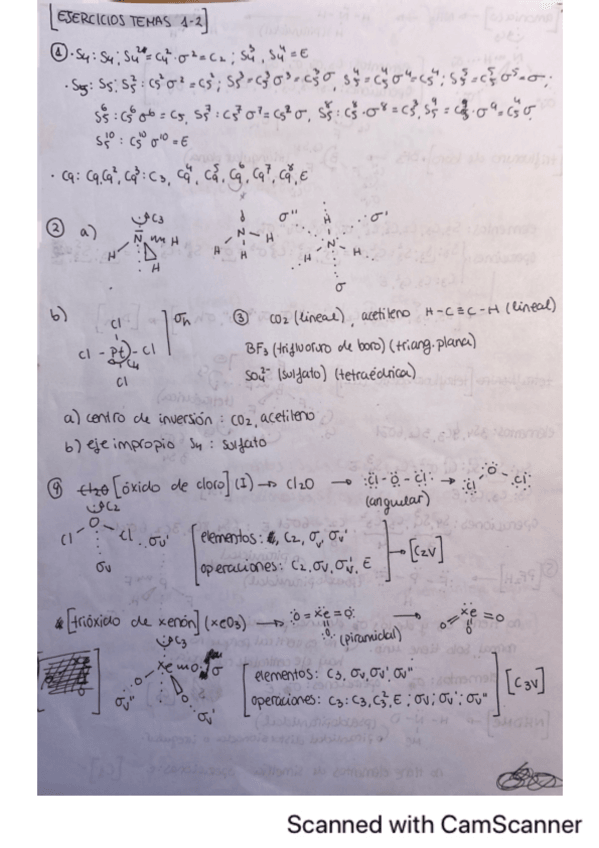 [EJERCICIOS TEMAS 1-2]
① · S4: S4; S4²=C4²·σ²=C2; S4³, S4⁴=E
· S5: S5; S5²: C5²σ²=C5²; S5³=C5³σ³=C5³σ, S5⁴=C5⁴σ⁴=C5⁴; S5⁵=C5⁵σ⁵=σ;
S5⁶: C5⁶σ⁶=C5, S5⁷: C5⁷σ⁷=C5²σ, S5⁸: C5⁸·σ⁸=C5³,
S5¹⁰: C5¹⁰σ¹⁰=E
· C9: C9, C9², C9³: C3, C9⁴, C9⁵, C9⁶, C9⁷, C9⁸, E
② a) C3 N H H H
N H H H σ''
H N H H σ' σ
b) Cl Cl - Pt - Cl Cl C4 σh
③ CO2 (lineal), acetileno H-C≡C-H (lineal)
BF3 (trifluoruro de boro) (triang. plana)
SO4²⁻ (sulfato) (tetraédrica)
a) centro de inversión: CO2, acetileno
b) eje impropio S4: sulfato
[óxido de cloro] (I) → Cl2O → Cl - O - Cl → Cl O Cl
(angular)
C2 Cl O Cl σv' σv
elementos: C2, σv, σv'
operaciones: C2, σv, σv', E
→ [C2V]
[trióxido de xenón] (XeO3) → O = Xe = O O → O = Xe = O O
(piramidal)
C3 Xe O O O σ σv'' σv'
elementos: C3, σv, σv', σv''
operaciones: C3: C3, C3², E; σv; σv'; σv''
[C3V]
Scanned with CamScanner